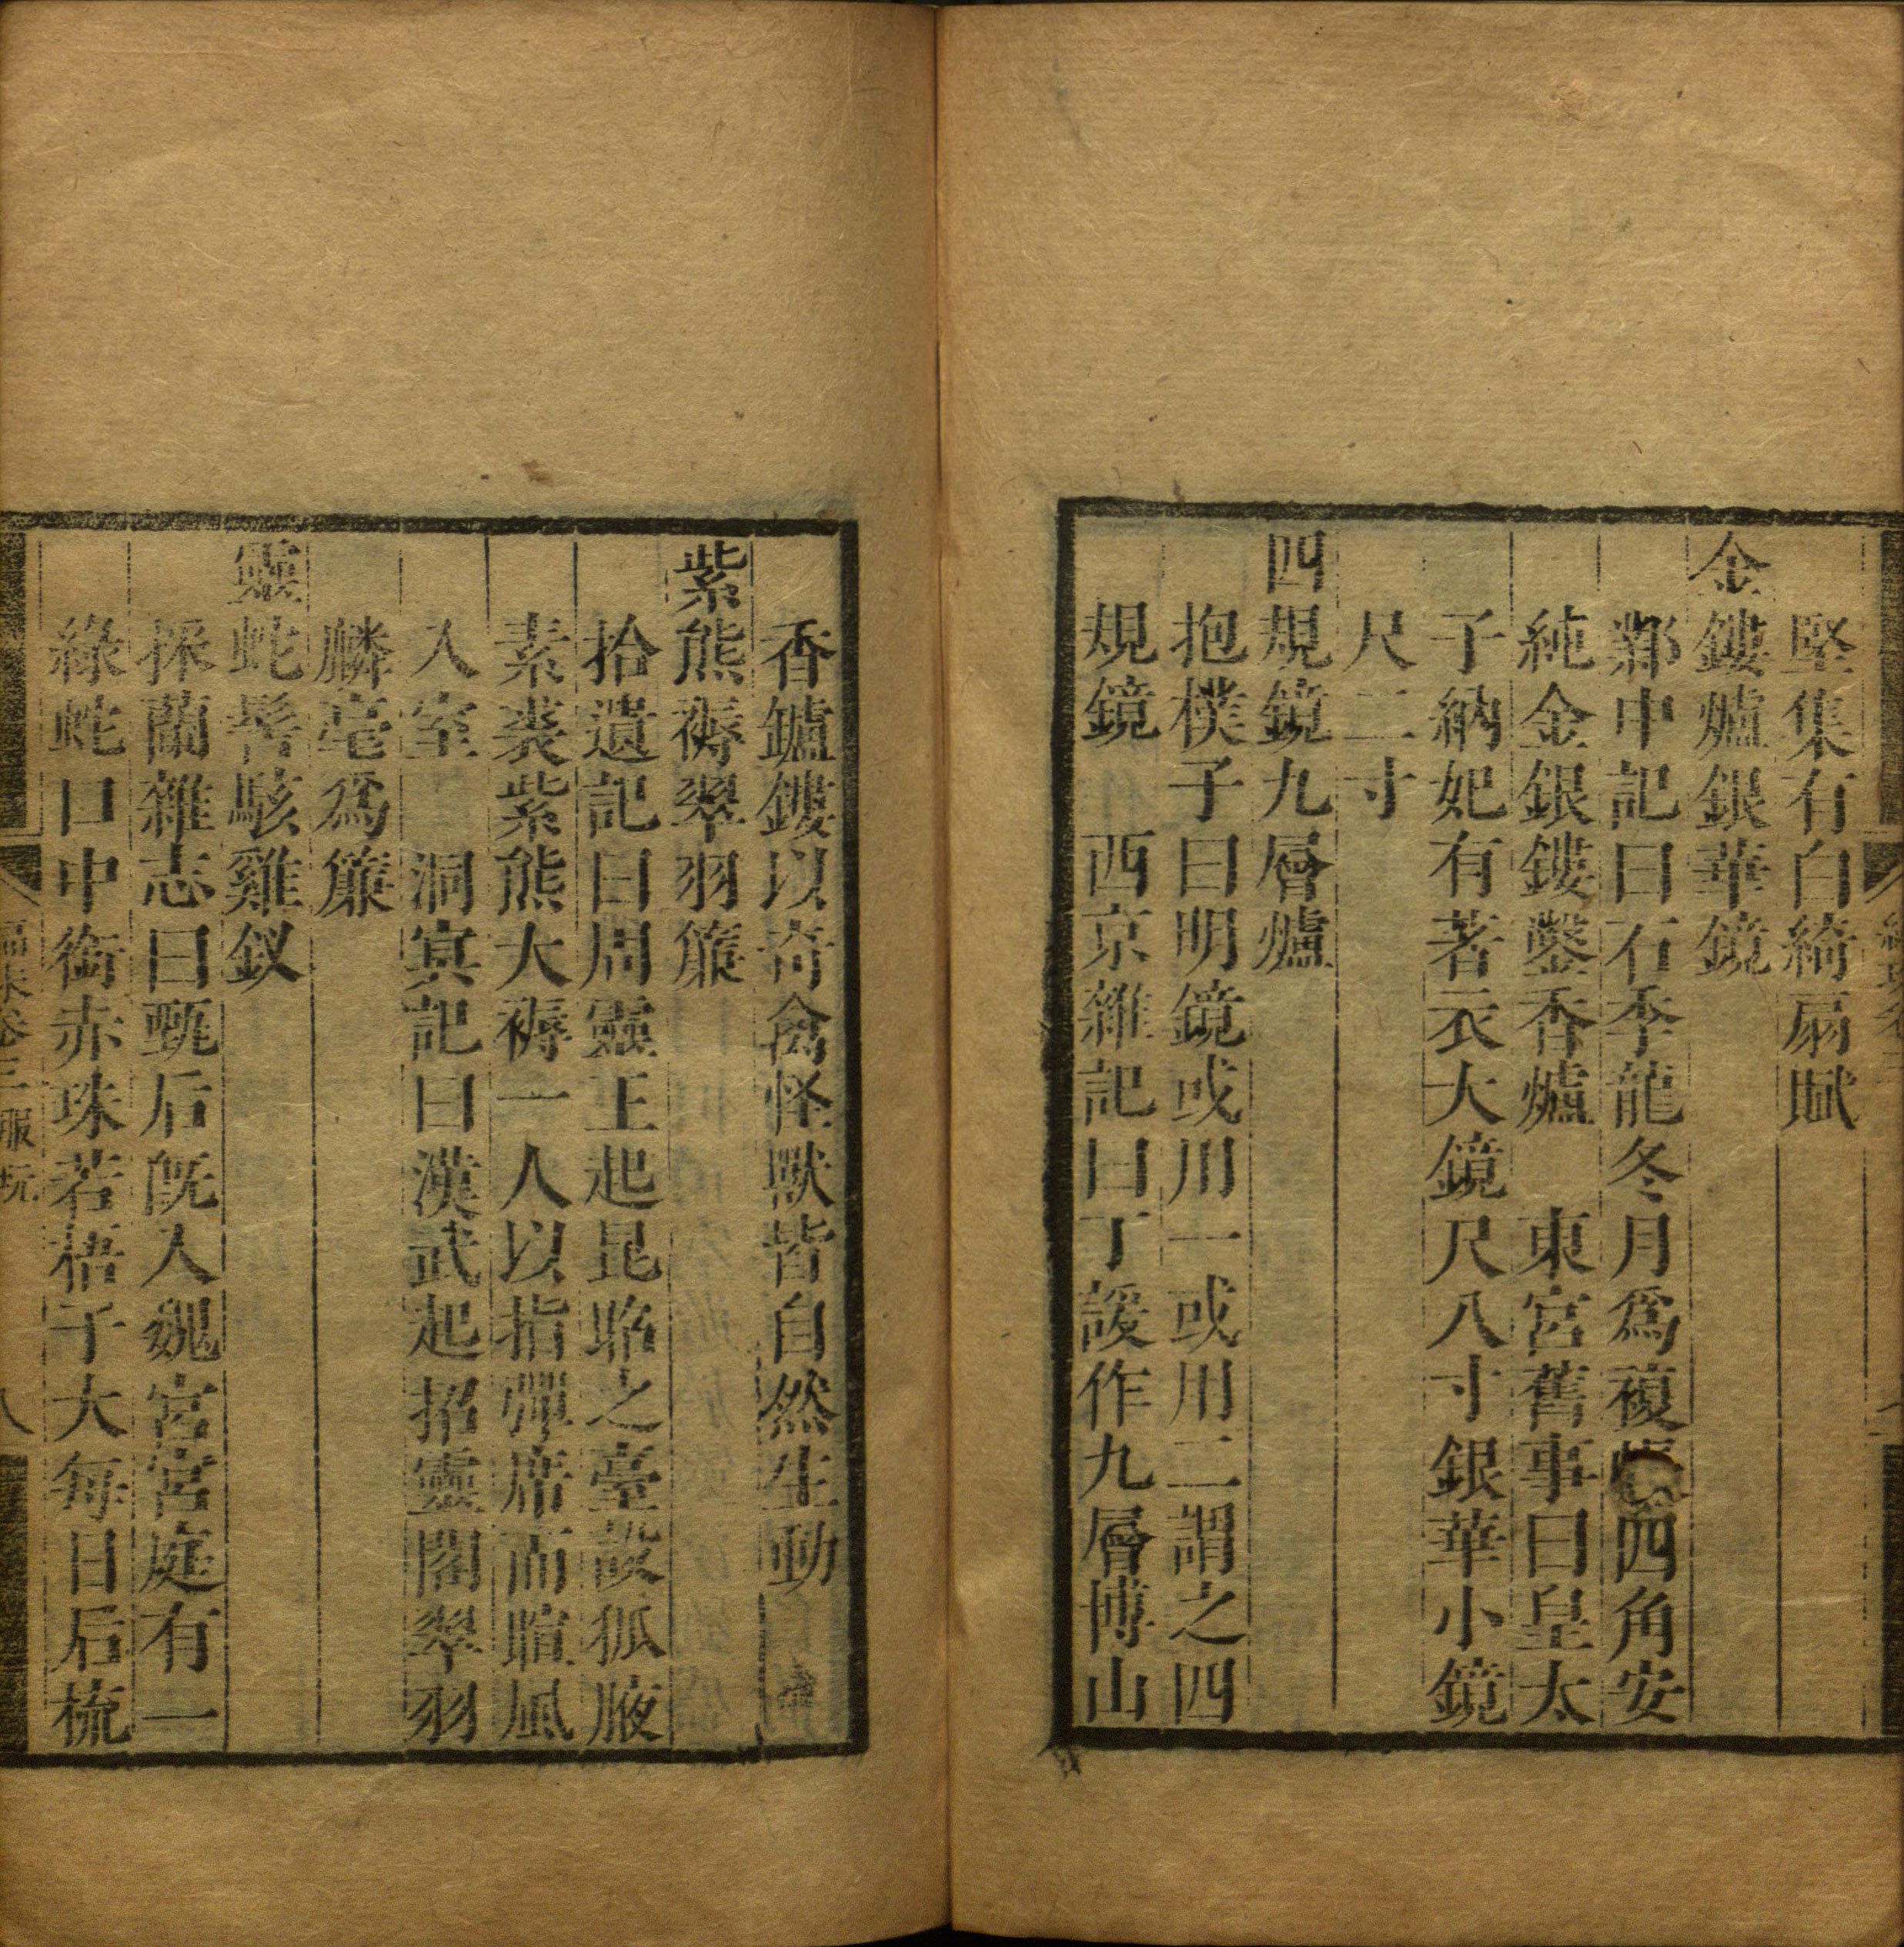 堅集有白綺扇賦
金鏤爐銀華鏡
鄴中記曰石季龍冬月爲複 四角安
純金銀鏤鑿香爐 東宮舊事曰皇太
子納妃有著衣大鏡尺八寸銀華小鏡
尺二寸
四規鏡九層爐
抱樸子曰明鏡或用一或用二謂之四
規鏡 西京雜記曰丁諼作九層博山
香鑪鏤以奇禽怪獸皆自然生動
紫熊褥翠羽簾
拾遺記曰周靈王起昆昭之臺設狐腋
素裘紫熊大褥一人以指彈席而暄風
入室 洞㝠記曰漢武起招靈閣翠羽
麟毫爲簾
靈蛇髻駭雞釵
採蘭雜志曰甄后旣入魏宮宮庭有一
綠蛇口中銜赤珠若梧子大每日后梳
卷三 服玩 八